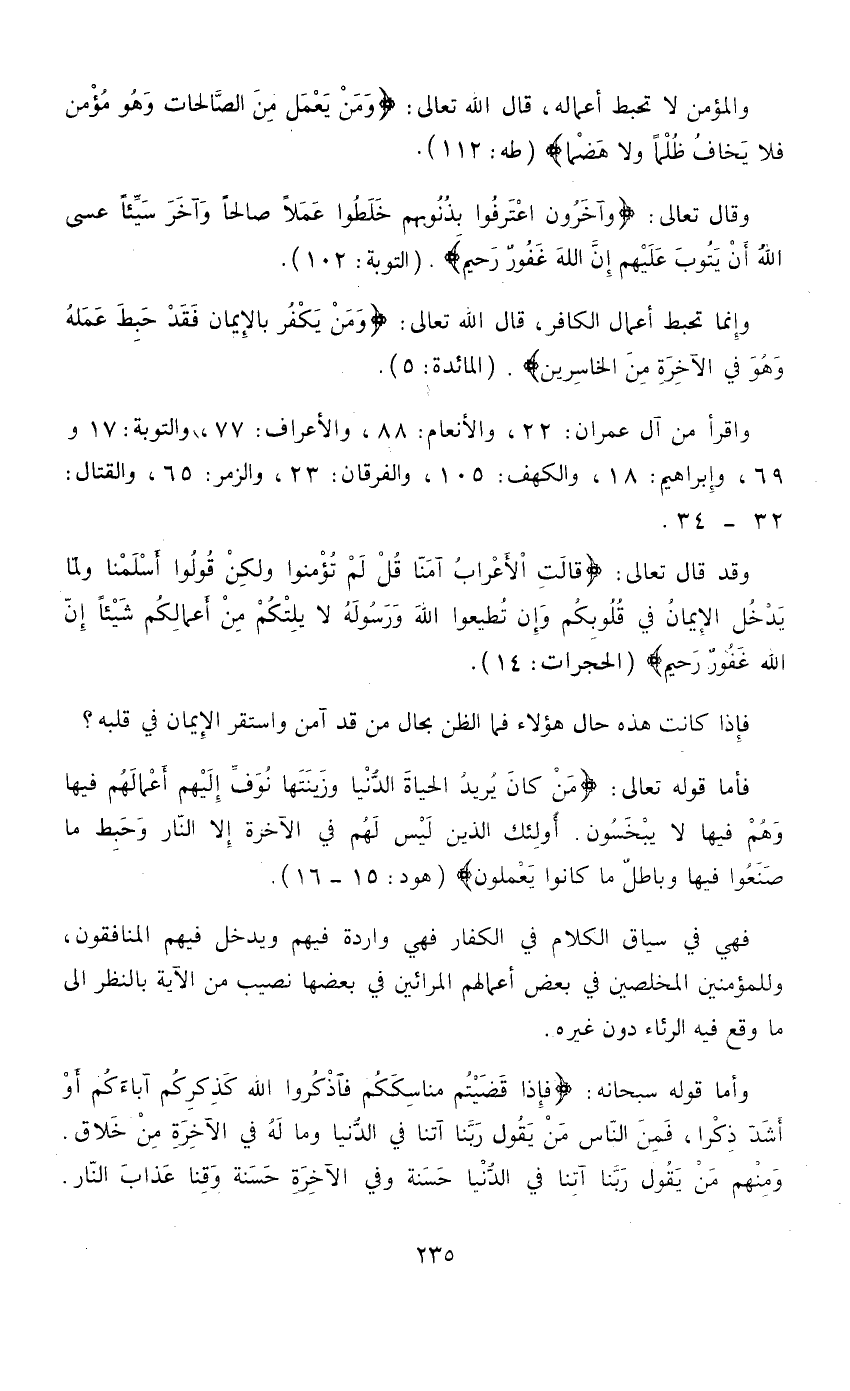 والمؤمن لا تحبط أعماله، قال الله تعالى: ﴿وَمَنْ يَعْمَل مِنَ الصَّالحات وَهُو مُؤْمن
فلا يَخافُ ظُلْماً ولا هَضْما﴾ (طه: ١١٢).
وقال تعالى: ﴿وآخَرُون اعْتَرفُوا بِذُنُوبهم خَلَطُوا عَمَلاً صالحاً وَآخَرَ سَيِّئاً عسى
اللهُ أَنْ يَتُوبَ عَلَيْهم إِنَّ اللهَ غَفُورٌ رَحيم﴾ . (التوبة: ١٠٢).
وإنما تحبط أعمال الكافر، قال الله تعالى: ﴿وَمَنْ يَكْفُر بالإيمان فَقَدْ حَبِطَ عَمَلهُ
وَهُوَ في الآخِرَة مِنَ الخاسرين﴾ . (المائدة: ٥).
واقرأ من آل عمران: ٢٢، والأنعام: ٨٨، والأعراف: ٧٧، والتوبة: ١٧ و
٦٩، وإبراهيم: ١٨، والكهف: ١٠٥، والفرقان: ٢٣، والزمر: ٦٥، والقتال:
٣٢ - ٣٤.
وقد قال تعالى: ﴿قالَتِ الْأَعْرابُ آمَنّا قُلْ لَمْ تُؤْمنوا ولكِنْ قُولُوا أَسْلَمْنا ولمّا
يَدْخُل الإيمانُ في قُلُوبِكُم وَإِن تُطيعوا اللهَ وَرَسُولَهُ لا يلِتْكُمْ مِنْ أَعمالِكُم شَيْئاً إنّ
الله غَفُورٌ رَحيم﴾ (الحجرات: ١٤).
فإذا كانت هذه حال هؤلاء فما الظن بحال من قد آمن واستقر الإيمان في قلبه؟
فأما قوله تعالى: ﴿مَنْ كانَ يُريدُ الحياةَ الدُّنْيا وزَينَتَها نُوَفِّ إِلَيْهم أَعْمالَهُم فيها
وَهُمْ فيها لا يبْخَسُون. أولئك الذين لَيْس لَهُم في الآخرة إلا النّار وَحَبِط ما
صَنَعُوا فيها وباطلٌ ما كانوا يَعْملون﴾ (هود: ١٥ - ١٦).
فهي في سياق الكلام في الكفار فهي واردة فيهم ويدخل فيهم المنافقون،
وللمؤمنين المخلصين في بعض أعمالهم المرائين في بعضها نصيب من الآية بالنظر الى
ما وقع فيه الرئاء دون غيره.
وأما قوله سبحانه: ﴿فإذا قَضَيْتُم مناسِكَكُم فَاَذْكُروا الله كَذِكرِكُم آباءَكُم أَوْ
أَشَدَ ذِكْرا، فَمِنَ النّاس مَنْ يَقُول رَبَّنا آتنا في الدُّنيا وما لَهُ في الآخِرَةِ مِنْ خَلاق.
وَمِنْهم مَنْ يَقُول رَبَّنا آتِنا في الدُّنْيا حَسَنة وفي الآخِرَةِ حَسَنة وَقِنا عَذابَ النّار.
٢٣٥